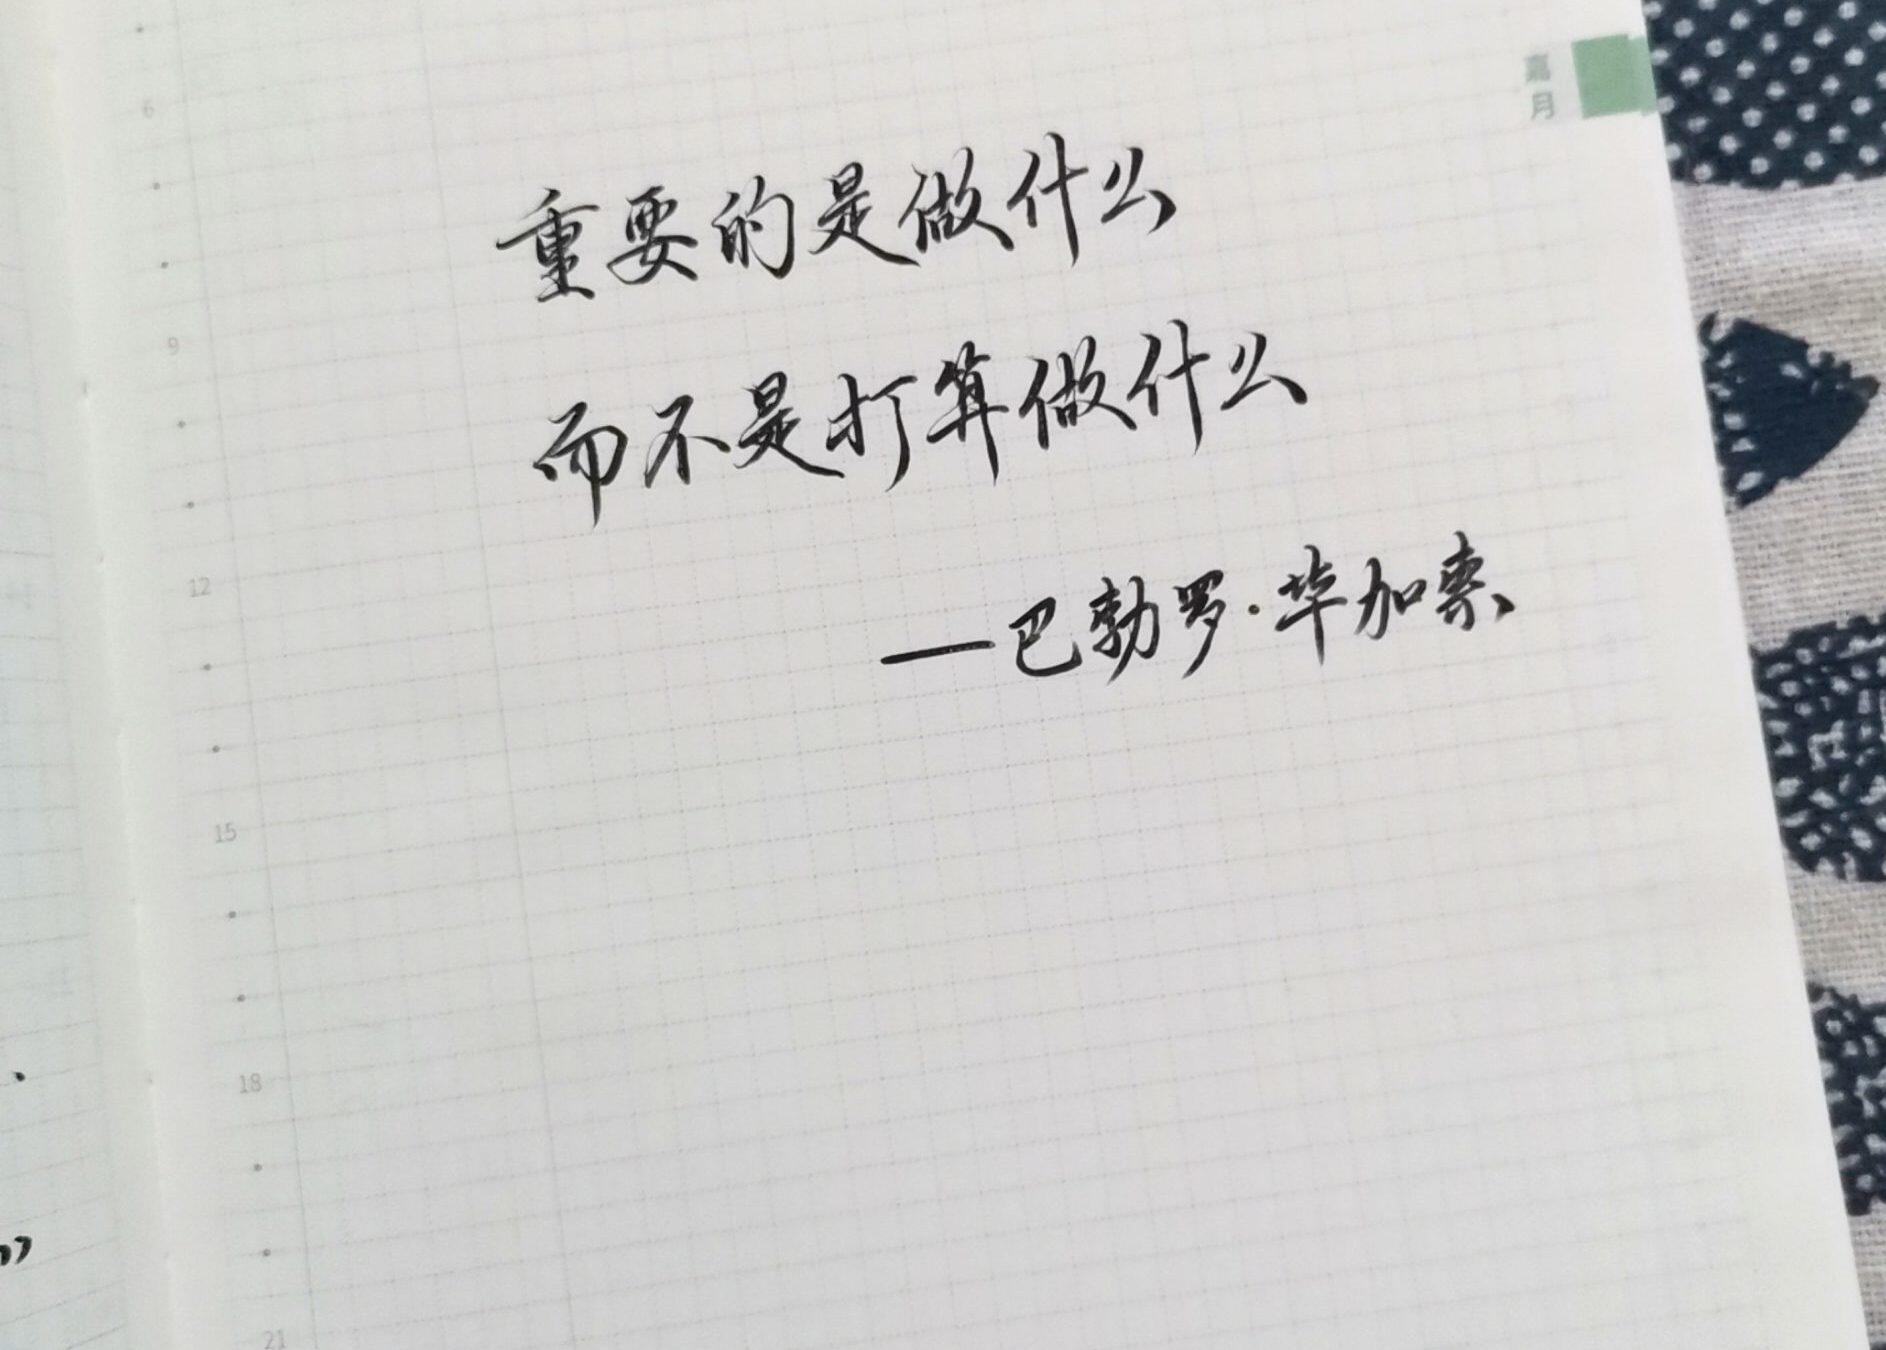 嘉月
6
重要的是做什么
9
而不是打算做什么
12
—巴勃罗·毕加索
15
18
21
”